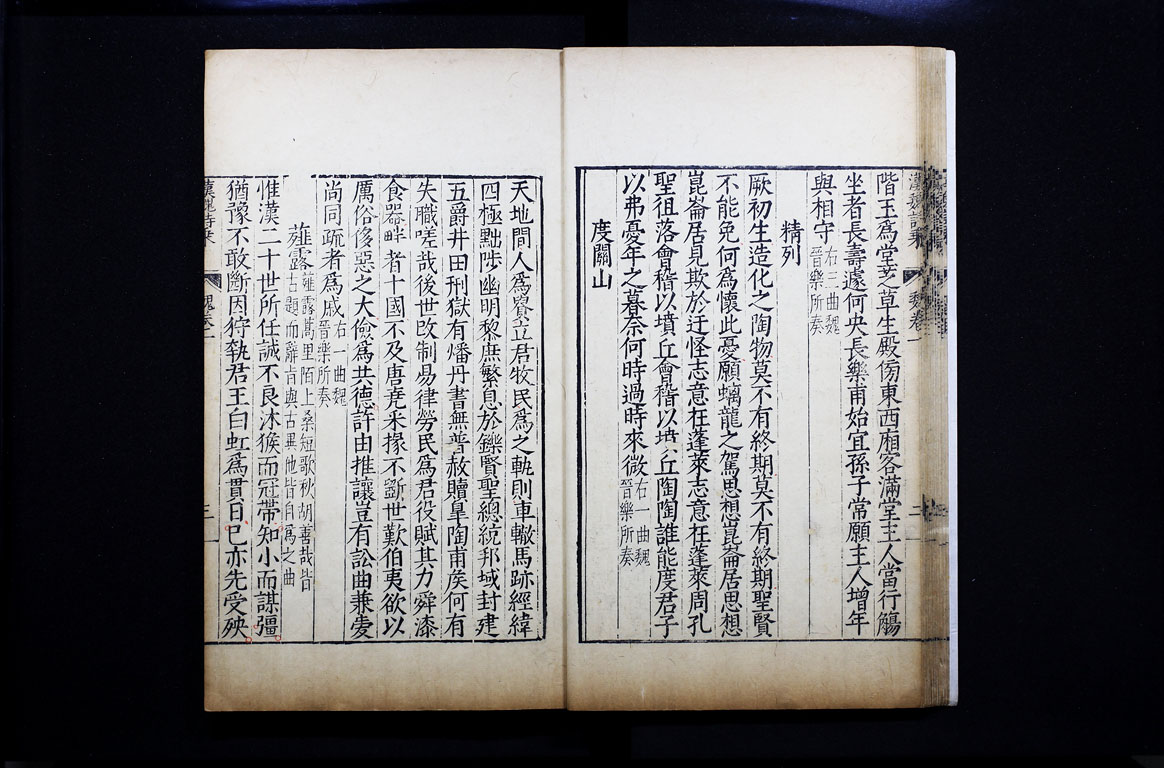 漢魏詩乘
魏卷一
二
階玉爲堂芝草生殿傍東西廂客滿堂主人當行觴
坐者長壽遽何央長樂甫始宜孫子常願主人增年
與相守右三曲魏
晉樂所奏
精列
厥初生造化之陶物莫不有終期莫不有終期聖賢
不能免何爲懷此憂願螭龍之駕思想崑崙居思想
崑崙居見欺於迂怪志意在蓬萊志意在蓬萊周孔
聖徂落會稽以墳丘會稽以墳丘陶陶誰能度君子
以弗憂年之暮奈何時過時來微右一曲魏
晉樂所奏
度關山
天地間人爲貴立君牧民爲之軌則車轍馬跡經緯
四極黜陟幽明黎庶繁息於鑠賢聖總統邦域封建
五爵井田刑獄有燔丹書無普赦贖臯陶甫侯何有
失職嗟哉後世改制易律勞民爲君役賦其力舜漆
食器畔者十國不及唐堯采椽不斲世歎伯夷欲以
厲俗侈惡之大儉爲共德許由推讓豈有訟曲兼愛
尚同疏者爲戚右一曲魏
晉樂所奏
薤露薤露蒿里陌上桑短歌秋胡善哉皆
古題而辭旨與古異他皆自爲之曲
惟漢二十世所任誠不良沐猴而冠帶知小而謀彊
猶豫不敢斷因狩執君王白虹爲貫日已亦先受殃
漢魏詩乘
魏卷一
三